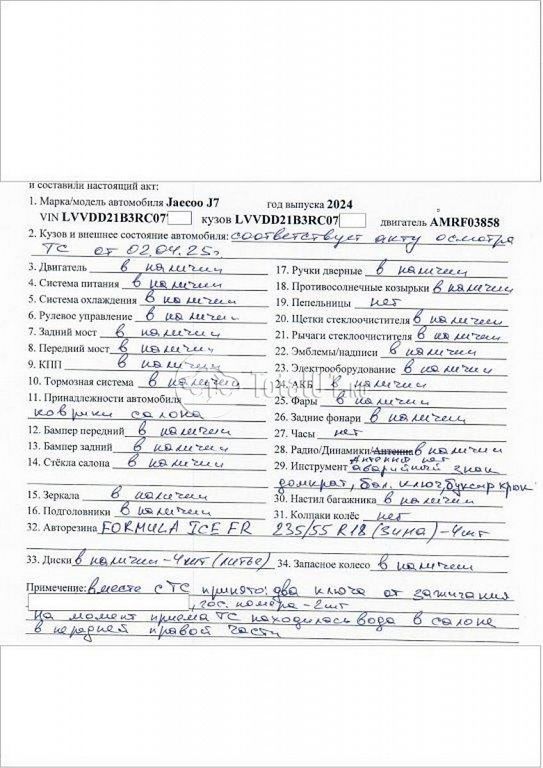 и составили настоящий акт:
1. Марка/модель автомобиля Jaecoo J7 год выпуска 2024
VIN LVVDD21B3RC07 кузов LVVDD21B3RC07 двигатель AMRF03858
2. Кузов и внешнее состояние автомобиля: соответствует акту осмотра
ТС от 02.04.25г
3. Двигатель в наличии
4. Система питания в наличии
5. Система охлаждения в наличии
6. Рулевое управление в наличии
7. Задний мост в наличии
8. Передний мост в наличии
9. КПП в наличии
10. Тормозная система в наличии
11. Принадлежности автомобиля
коврики салона
12. Бампер передний в наличии
13. Бампер задний в наличии
14. Стёкла салона в наличии
15. Зеркала в наличии
16. Подголовники в наличии
17. Ручки дверные в наличии
18. Противосолнечные козырьки в наличии
19. Пепельницы нет
20. Щетки стеклоочистителя в наличии
21. Рычаги стеклоочистителя в наличии
22. Эмблемы/надписи в наличии
23. Электрооборудование в наличии
24. АКБ в наличии
25. Фары в наличии
26. Задние фонари в наличии
27. Часы нет
28. Радио/Динамики/Антенна в наличии
Антенна нет
29. Инструмент аварийный знак
домкрат, бал. ключ, буксир крюк
30. Настил багажника в наличии
31. Колпаки колёс нет
32. Авторезина FORMULA ICE FR 235/55 R18 (зима) - 4шт
33. Диски в наличии - 4шт (литьё) 34. Запасное колесо в наличии
Примечание: вместе с ТС принято: два ключа от зажигания
, гос. номера - 2шт
На момент приема ТС находилась вода в салоне
в передней правой части